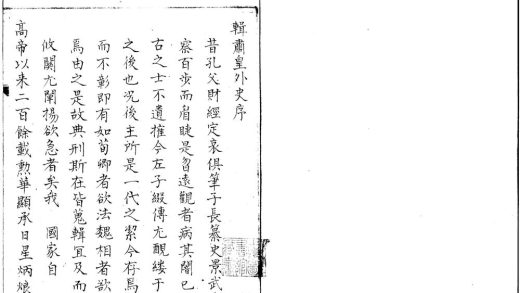 輯肅皇外史序
昔孔父財經定哀俱筆子長纂史景武
察百步而眉睫是曶遠觀者病其闇已
古之士不遺推今左子綴傳尤覶縷于
之後也況後主所是一代之絜今存焉
而不彰即有如荀卿者欲法魏相者欲
焉由之是故典刑斯在皆蒐輯宜及而
攸關尤闡揚欲急者矣我 國家自
高帝以来二百餘載勲華顯承日星炳烺